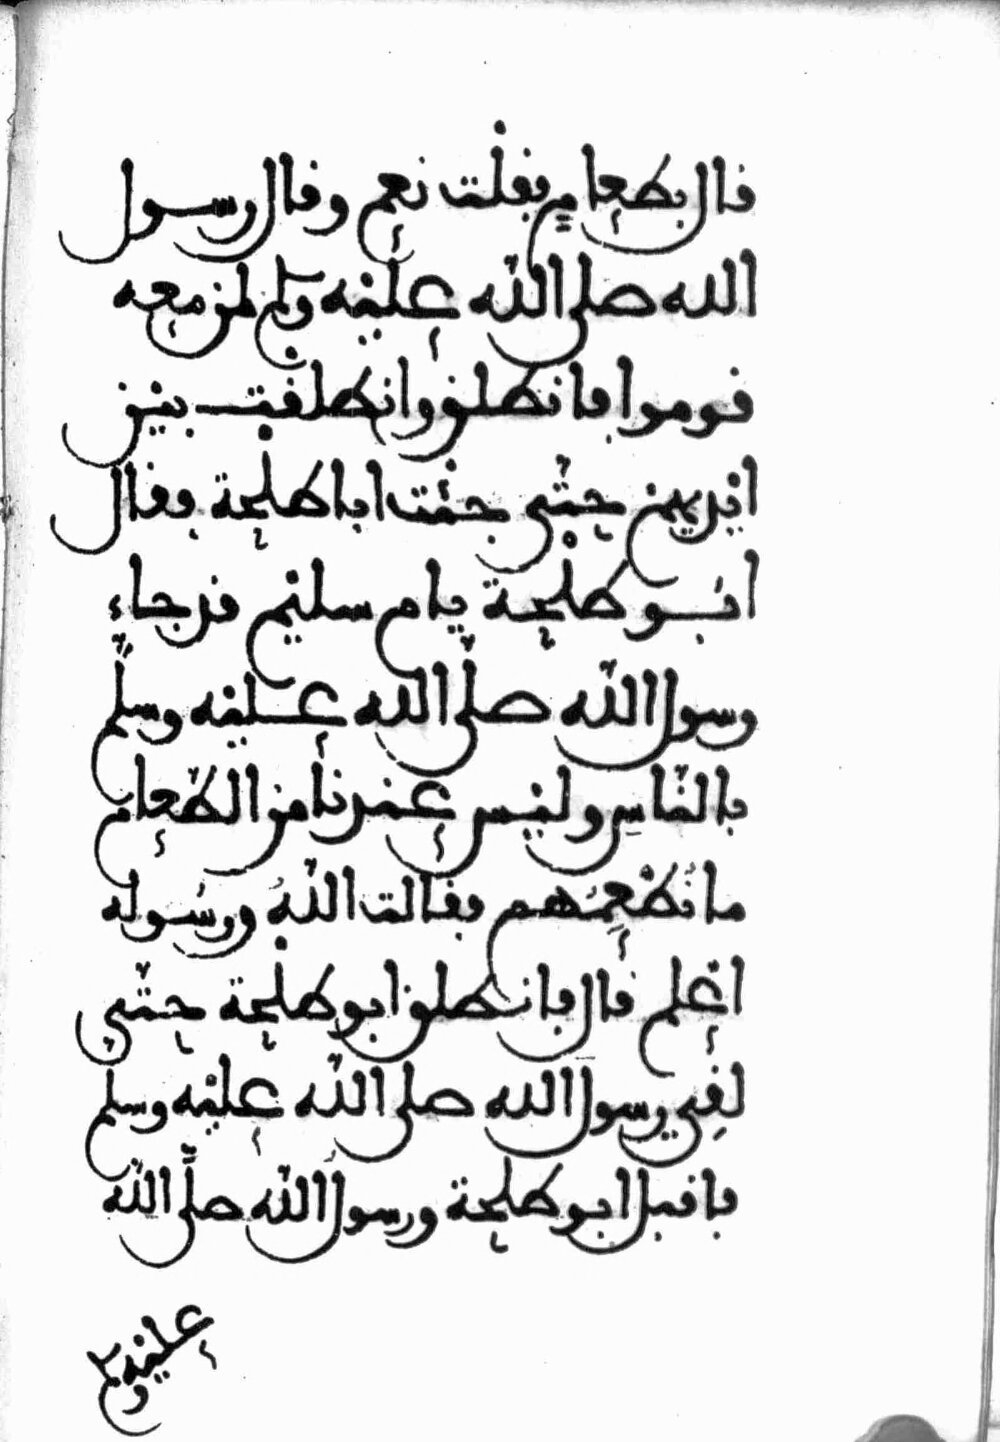 قال بطعامٍ فقلت نعم وقال رسول
الله صلى الله عليه وسلم لمن معه
قوموا فانطلق وانطلقت بين
ايديهم حتى جئت ابا طلحة فقال
ابو طلحة يام سليم قد جاء
رسول الله صلّى الله عليه وسلّم
بالنّاسِ وليس عندنا من الطّعام
ما نُطْعِمُهم فقالت اللهُ ورسُوله
اعلم قال فانطلق ابو طلحة حتّى
لقِى رسول الله صلى الله عليه وسلم
فاقبل ابو طلحة ورسول الله صلّى الله
عليه و